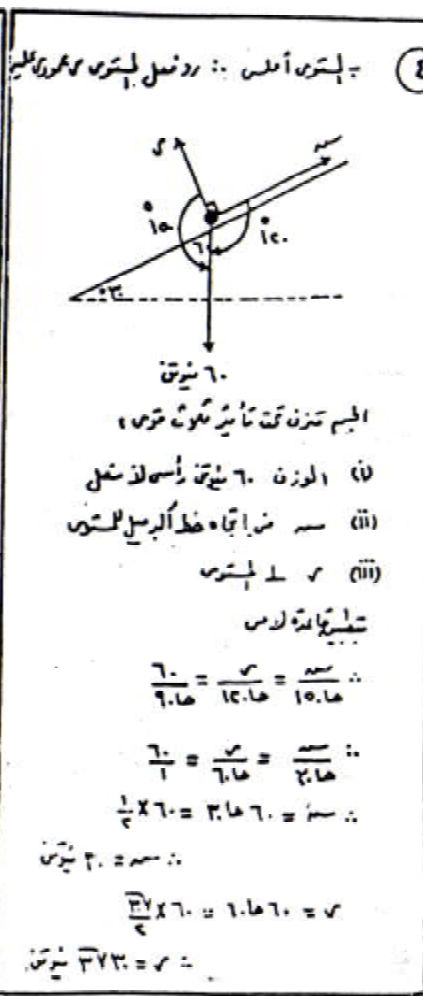 ٤
∵ المستوى أملس ∴ رد فعل المستوى س عمودى عليه
س
سه
١٥٠°
١٢٠°
٦٠
٣٠°
٦٠ نيوتن
الجسم متزن تحت تأثير ثلاث قوى:
(i) الوزن ٦٠ نيوتن رأسى لأسفل
(ii) سه فى اتجاه خط أكبر ميل للمستوى
(iii) س ⊥ المستوى
بتطبيق قاعدة لامى
∴ سه/حا١٥٠ = س/حا١٢٠ = ٦٠/حا٩٠
∴ سه/حا٣٠ = س/حا٦٠ = ٦٠/١
∴ سه = ٦٠ حا٣٠ = ٦٠ × ١/٢
∴ سه = ٣٠ نيوتن
س = ٦٠ حا٦٠ = ٦٠ × √٣/٢
∴ س = ٣٠√٣ نيوتن